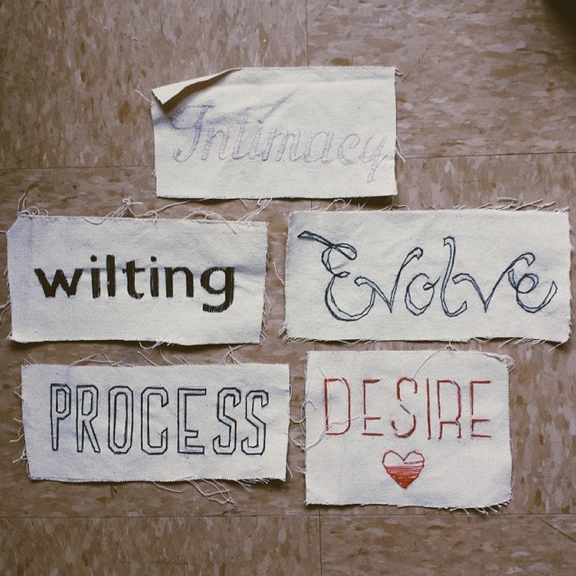 Intimacy
wilting
Evolve
PROCESS
DESIRE